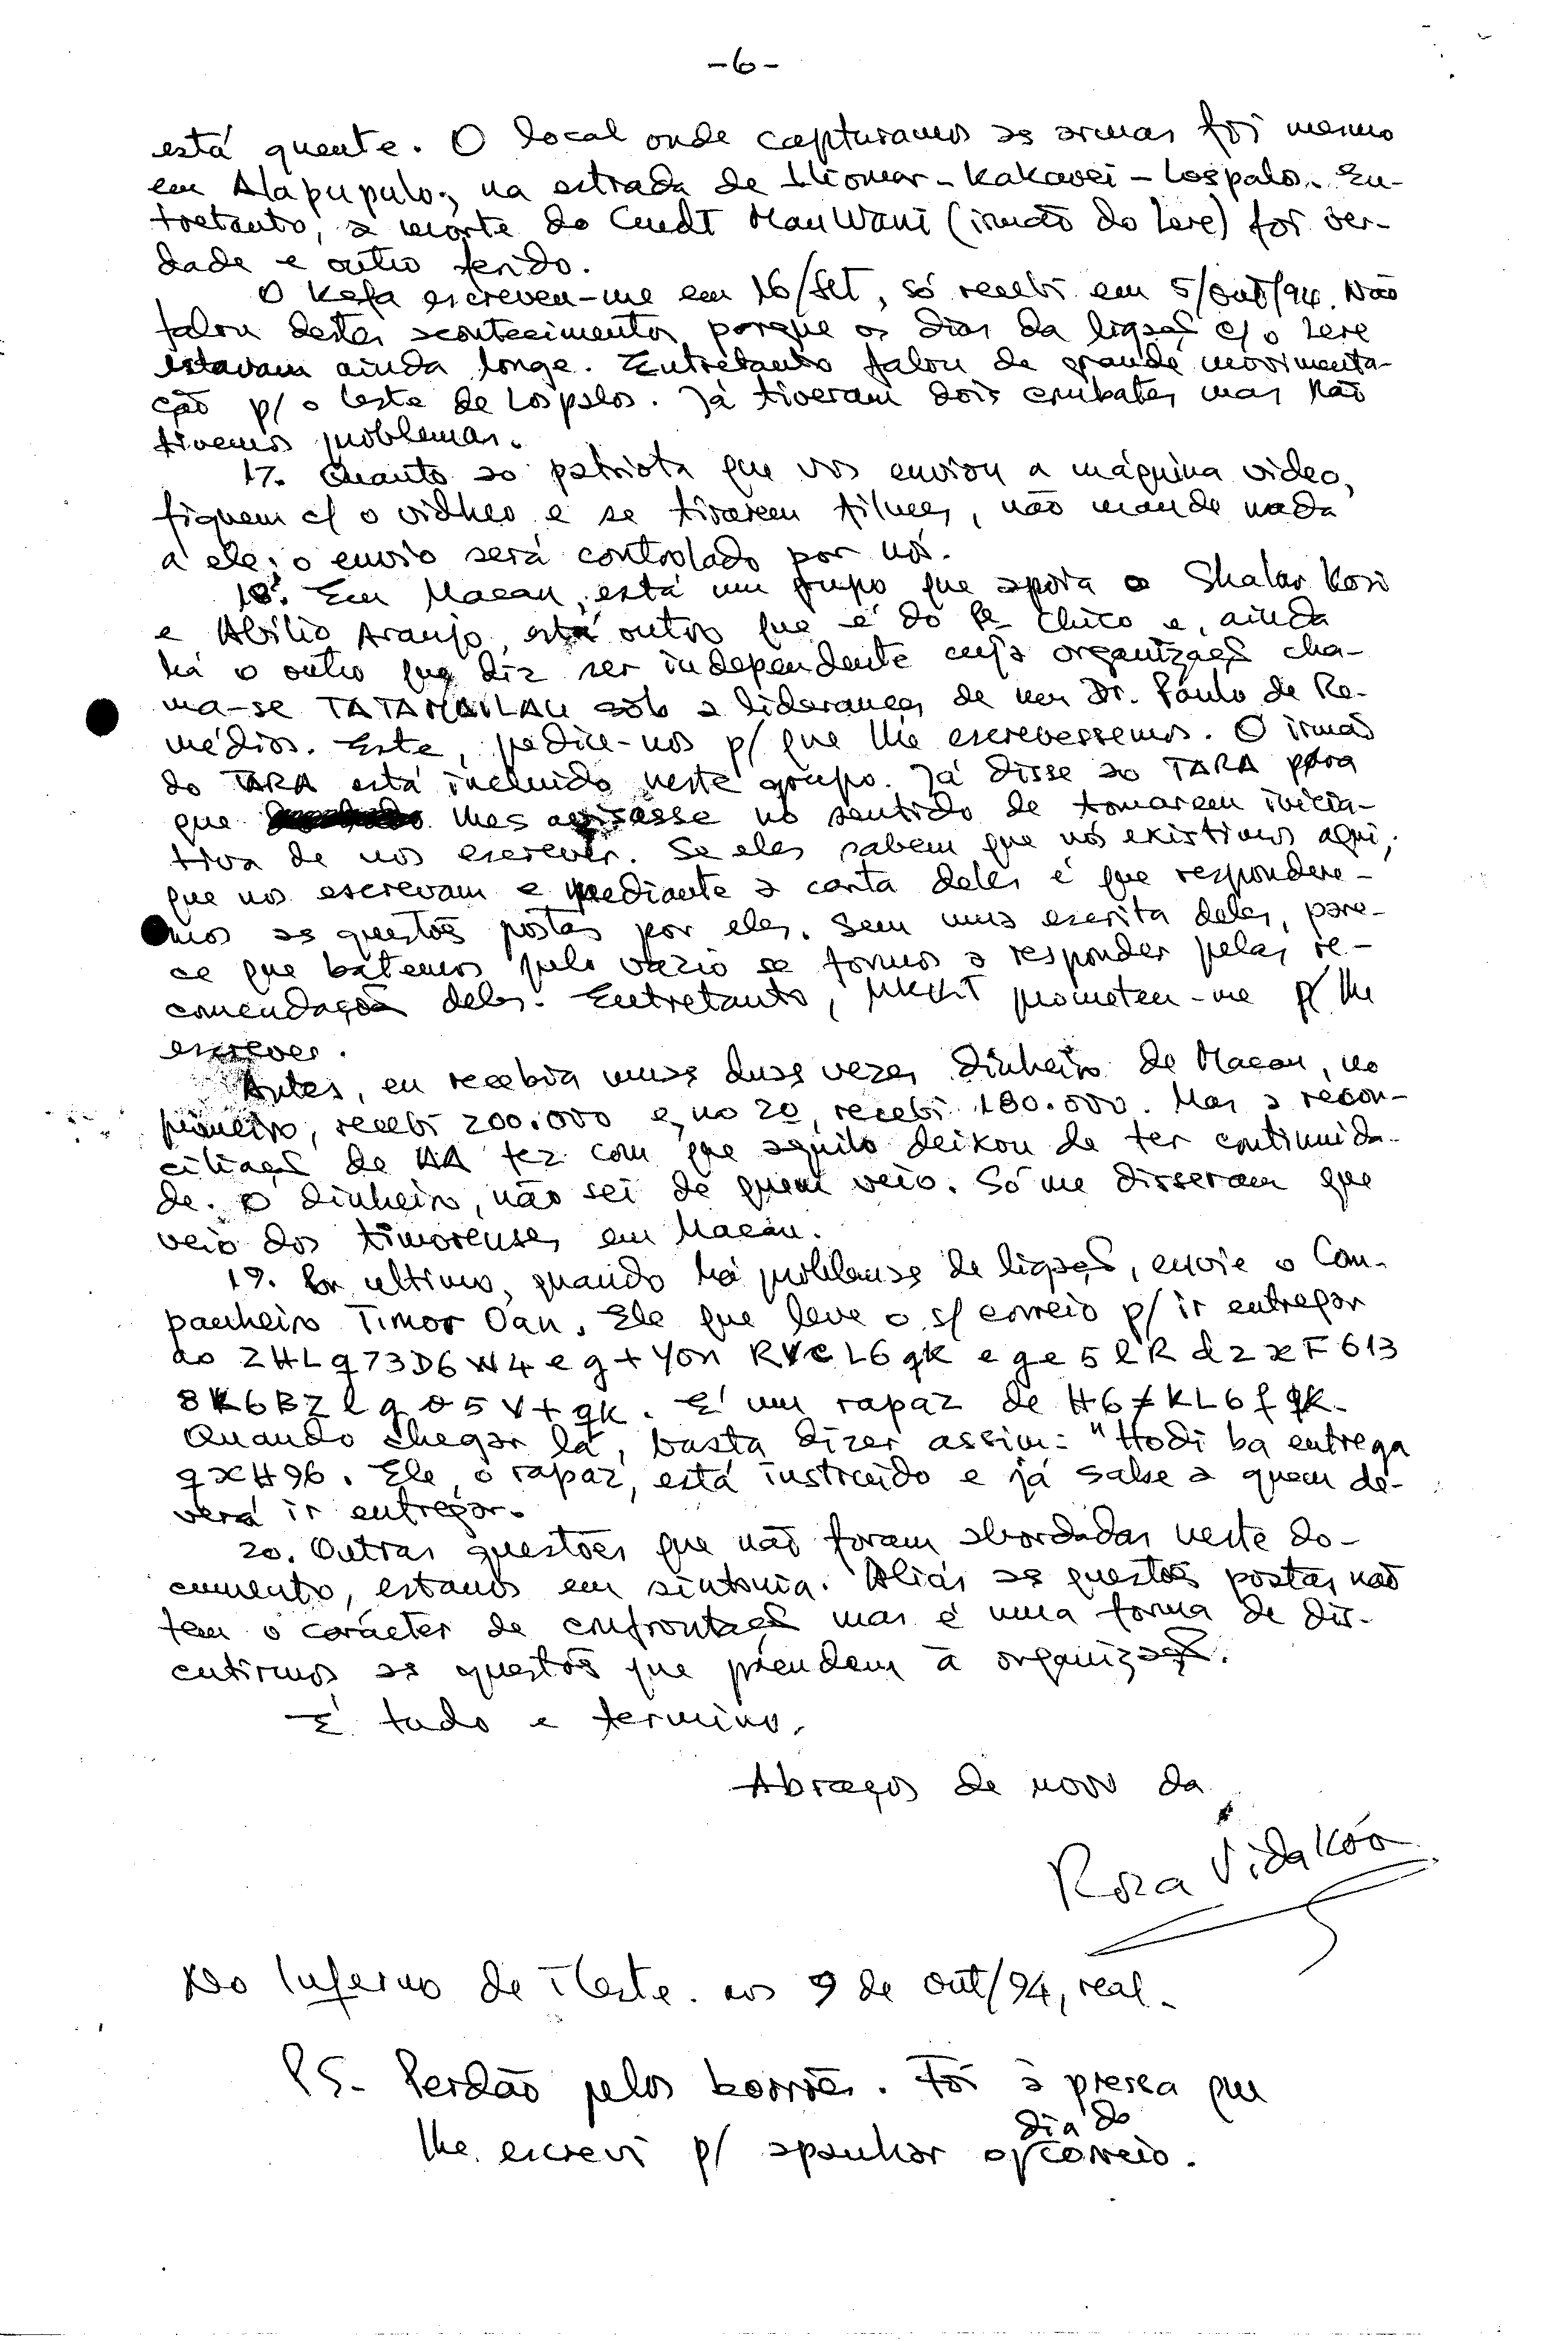 -6-
está quente. O local onde capturamos as armas foi mesmo
em Alapupulo, na estrada de Iliomar - Kakavei - Lospalos. En-
tretanto, a morte do Cmdt Mau Wani (irmão do Lere) foi ver-
dade e outro ferido.
O Kefa escreveu-me em 16/Set, só recebi em 5/out/94. Não
falou destes acontecimentos porque os dias da ligação c/ o Lere
estavam ainda longe. Entretanto falou de grande movimenta-
ção p/ o leste de Lospalos. Já tiveram dois combates mas não
tivemos problemas.
17. Quanto ao patriota que vos enviou a máquina video,
fiquem c/ o vidheo e se tirarem filmes, não mande nada
a ele; o envio será controlado por nós.
18. Em Macau, está um grupo que apoia o Shalar Kosi
e Abílio Araujo, está outro que é do Pe Chico e, ainda
há o outro que diz ser independente cuja organização cha-
ma-se TATAMAILAU sob a liderança de um Dr. Paulo de Re-
médios. Este, pediu-nos p/ que lhe escrevessemos. O irmão
do TARA está incluido neste grupo. Já disse ao TARA para
que lhes avisasse no sentido de tomarem inicia-
tiva de nos escrever. Se eles sabem que nós existimos aqui,
que nos escrevam e mediante a carta deles é que respondere-
mos as questões postas por eles. Sem uma escrita deles, pare-
ce que batemos pelo vazio se formos a responder pelas re-
comendações deles. Entretanto, prometeu-me p/ lhe
escrever.
Antes, eu recebia umas duas vezes dinheiro de Macau, no
primeiro, recebi 200.000 e, no 2o, recebi 180.000. Mas a recon-
ciliação de AA fez com que aquilo deixou de ter continuida-
de. O dinheiro, não sei de quem veio. Só me disseram que
veio dos timorenses em Macau.
19. Por ultimo, quando há problemas de ligação, envie o Com-
panheiro Timor Oan. Ele que leve o s/ correio p/ ir entregar
ao ZHLq73D6W4eg+Yon RVCL6qK ege5lRd2xF613
8K6BZlqθ5V+qK. É um rapaz de H6≠KL6fqK.
Quando chegar lá, basta dizer assim: "Hodi ba entrega
qxH96. Ele, o rapaz, está instruido e já sabe a quem de-
verá ir entregar.
20. Outras questões que não foram abordadas neste do-
cumento, estamos em sintonia. Aliás as questões postas não
tem o carácter de confrontação mas é uma forma de dis-
cutirmos as questões que prendem à organização.
É tudo e termino.
Abraços de novo da
Roza Vida Kóo
No Inferno de Leste. aos 9 de Out/94, real.
PS- Perdão pelos borrões. Foi à pressa que
lhe escrevi p/ apanhar o dia do correio.